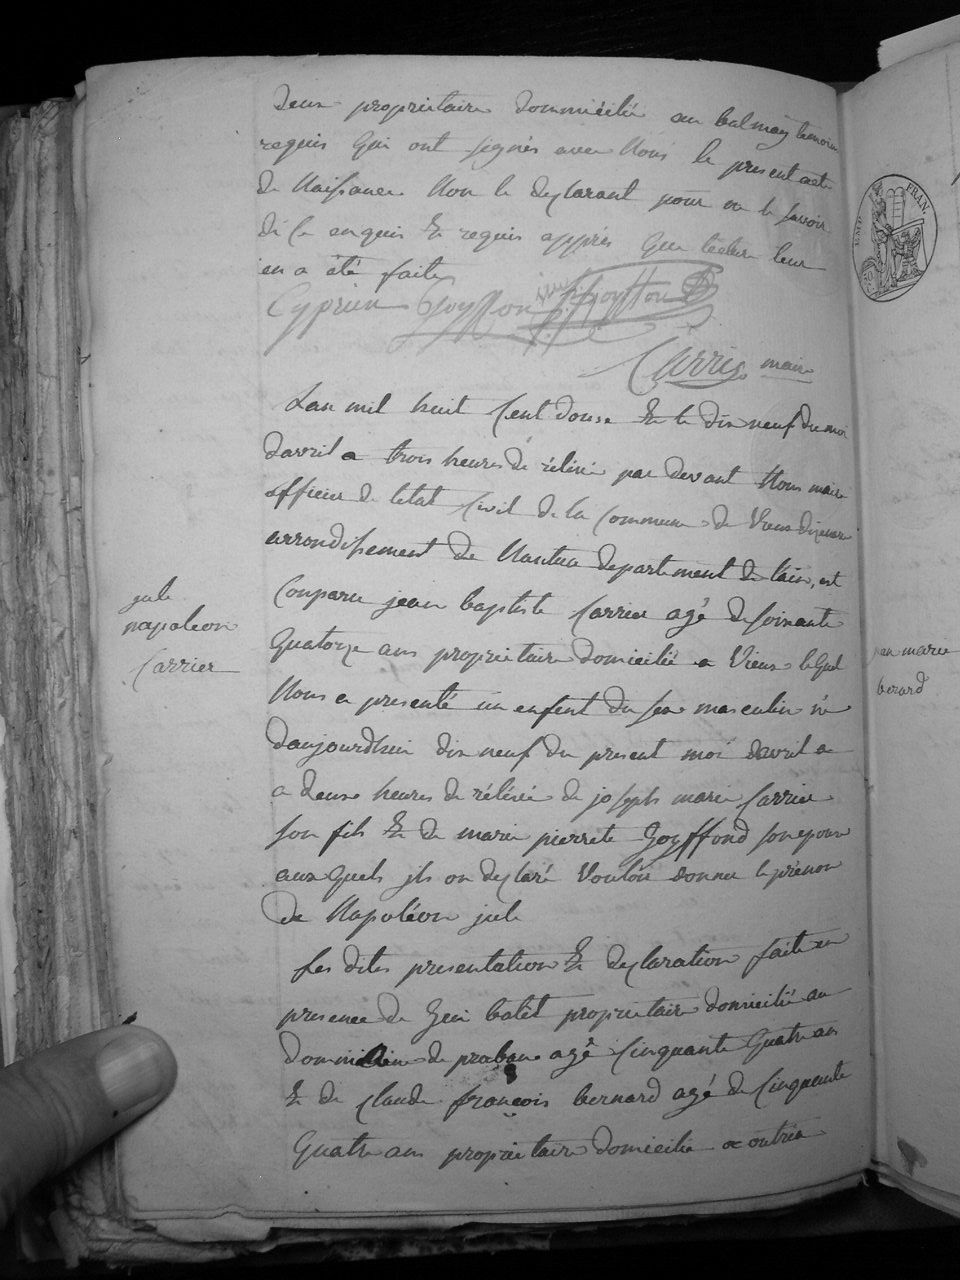 deux propriétaire dommicilié au balmay temoin
requis qui ont signés avec Nous le present acte
de Naissance Non le declarant pour ne le savoir
di ce enquis & requis appres que lecture leur
en a été faite
Cyprien Goyffon Goyffon
Carrier maire
Lan mil huit Cent douse & le dix neuf du moi
davril a trois heures de rélévé par devant Nous maire
officier de letat Civil de la Commune de Vieux dizenave
arrondissement de Nantua departement de lain, est
Comparu jean baptiste Carrier agé de soixante
Quatorze ans propriétaire domicilié a Vieux lequel
Nous a presenté un enfent du sexe masculin né
daujourdhui dix neuf du present moi davril a
a deux heures de rélévé de joseph marie Carrier
son fils & de marie pierrete Goyffond son epouse
aux quels jls on declaré Vouloir donner le prénon
de Napoléon jule
Les dites presentation & declaration faite en
presence de balét propriétaire domicilié au
dommicilié de prabane agé Cinquante Quatre ans
& de claude françois bernard agé de Cinquente
Quatre ans propriétaire domicilié a
jule
napoléon
Carrier
EMP. FRAN.
jean marie
berard